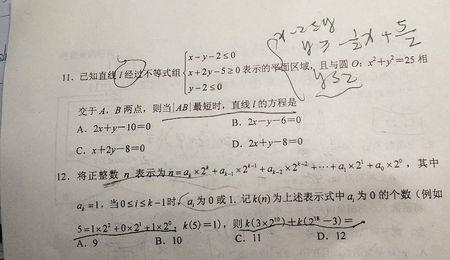 x-2≤y
y≥-\frac{1}{2}x+\frac{5}{2}
y≤2
11. 已知直线 l 经过不等式组 { x-y-2≤0 x+2y-5≥0 y-2≤0 表示的平面区域,且与圆 O: x²+y²=25 相
交于 A,B 两点,则当 |AB| 最短时,直线 l 的方程是
A. 2x+y-10=0 B. 2x-y-6=0
C. x+2y-8=0 D. 2x+y-8=0
12. 将正整数 n 表示为 n=aₖ×2ᵏ+aₖ₋₁×2ᵏ⁻¹+aₖ₋₂×2ᵏ⁻²+⋯+a₁×2¹+a₀×2⁰,其中
aₖ=1,当 0≤i≤k-1 时,aᵢ 为 0 或 1. 记 k(n) 为上述表示式中 aᵢ 为 0 的个数(例如
5=1×2²+0×2¹+1×2⁰,k(5)=1),则 k(3×2¹⁰)+k(2¹⁸-3)=
A. 9 B. 10 C. 11 D. 12